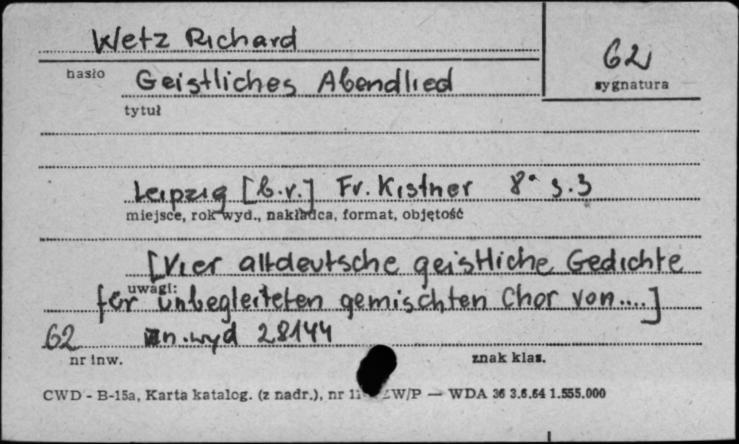 Wetz Richard
62
hasło
Geistliches Abendlied
sygnatura
tytuł
Leipzig [b.r.] Fr. Kistner 8° s.3
miejsce, rok wyd., nakładca, format, objętość
[Vier altdeutsche geistliche Gedichte
uwagi:
für unbegleiteten gemischten Chor von....]
62 n.wyd 28144
nr inw.
znak klas.
CWD - B-15a, Karta katalog. (z nadr.), nr ZW/P — WDA 36 3.6.64 1.555.000